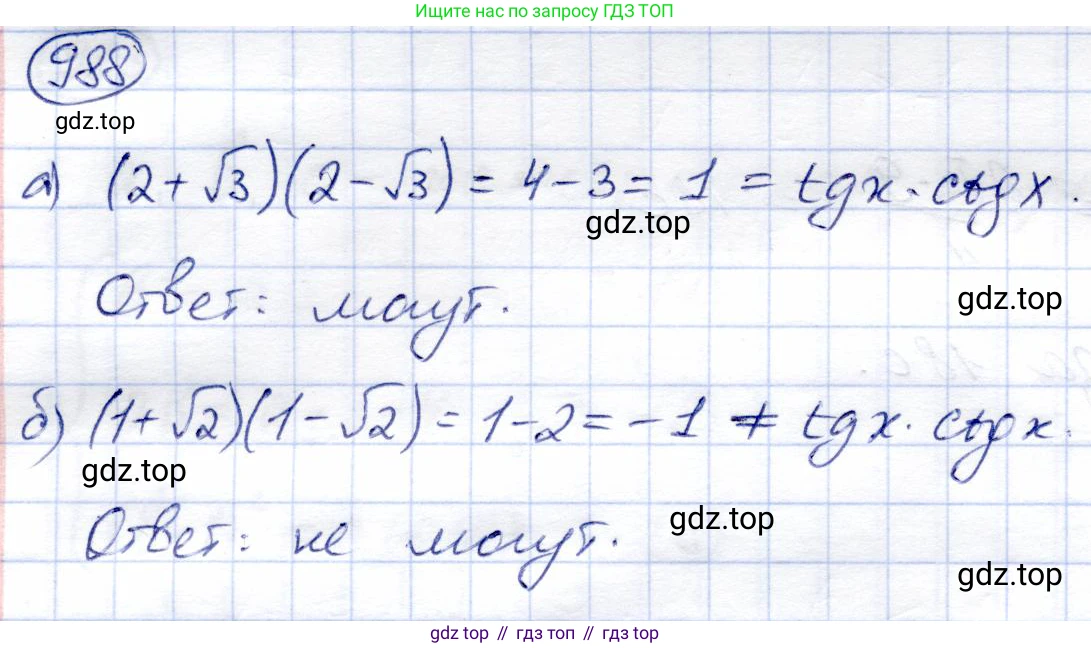 Ищите нас по запросу ГДЗ ТОП
988
gdz.top
а) (2 + √3)(2 - √3) = 4 - 3 = 1 = tgx · ctgx.
gdz.top
Ответ: могут.
gdz.top
б) (1 + √2)(1 - √2) = 1 - 2 = -1 ≠ tgx · ctgx.
gdz.top
Ответ: не могут.
gdz.top
gdz.top
gdz top // гдз топ // gdz top